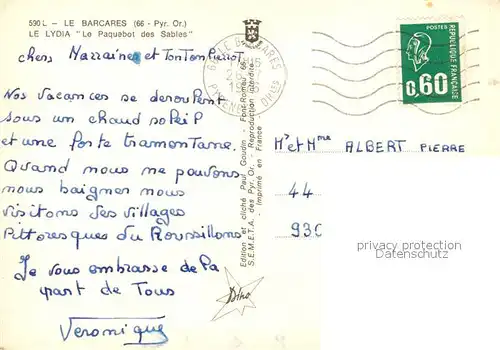 590 L - LE BARCARES (66 - Pyr. Or.)
LE LYDIA "Le Paquebot des Sables"
chers Marraine et TonTon Pierrot
Nos Vacances se deroulent
sous un chaud soleil
et une forte tramontane.
Quand nous ne pouvons
nous baigner nous
visitons des villages
Pittoresques du Roussillons
Je vous embrasse de la
part de Tous
Veronique
Edition et cliché Paul Gaudin - Font-Romeu 66
S.E.M.E.T.A. des Pyr. Or. - Reproduction interdite
Imprimé en France
Dino
LE BARCARES
PYRENEES
POSTES
REPUBLIQUE FRANÇAISE
0,60
Mr et Mme ALBERT PIERRE
44
930
privacy protection
Datenschutz